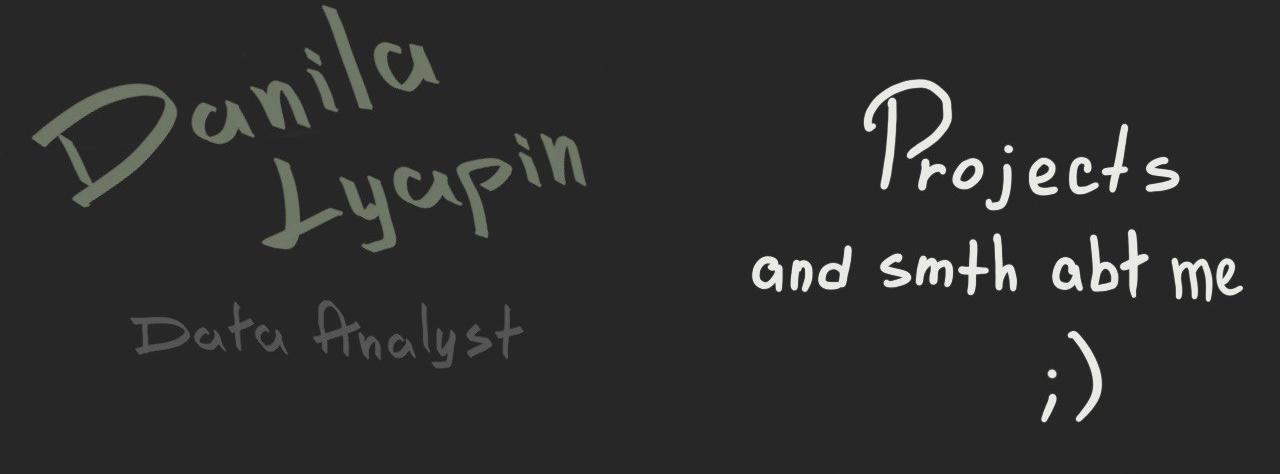 Danila
Lyapin
Data Analyst
Projects
and smth abt me
;)